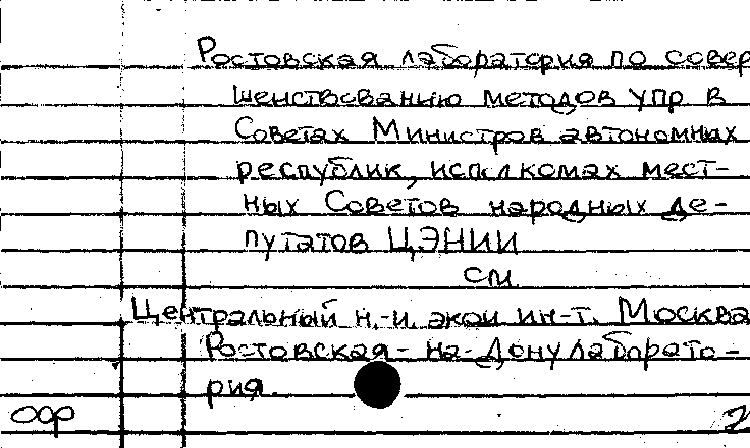 Ростовская лаборатория по совер
шенствованию методов упр в
Советах Министров автономных
республик, исполкомах мест-
ных Советов народных де-
путатов ЦЭНИИ
см
Центральный н.-и. экон ин-т. Москва
Ростовская-на-Дону лаборато-
рия.
оор 2